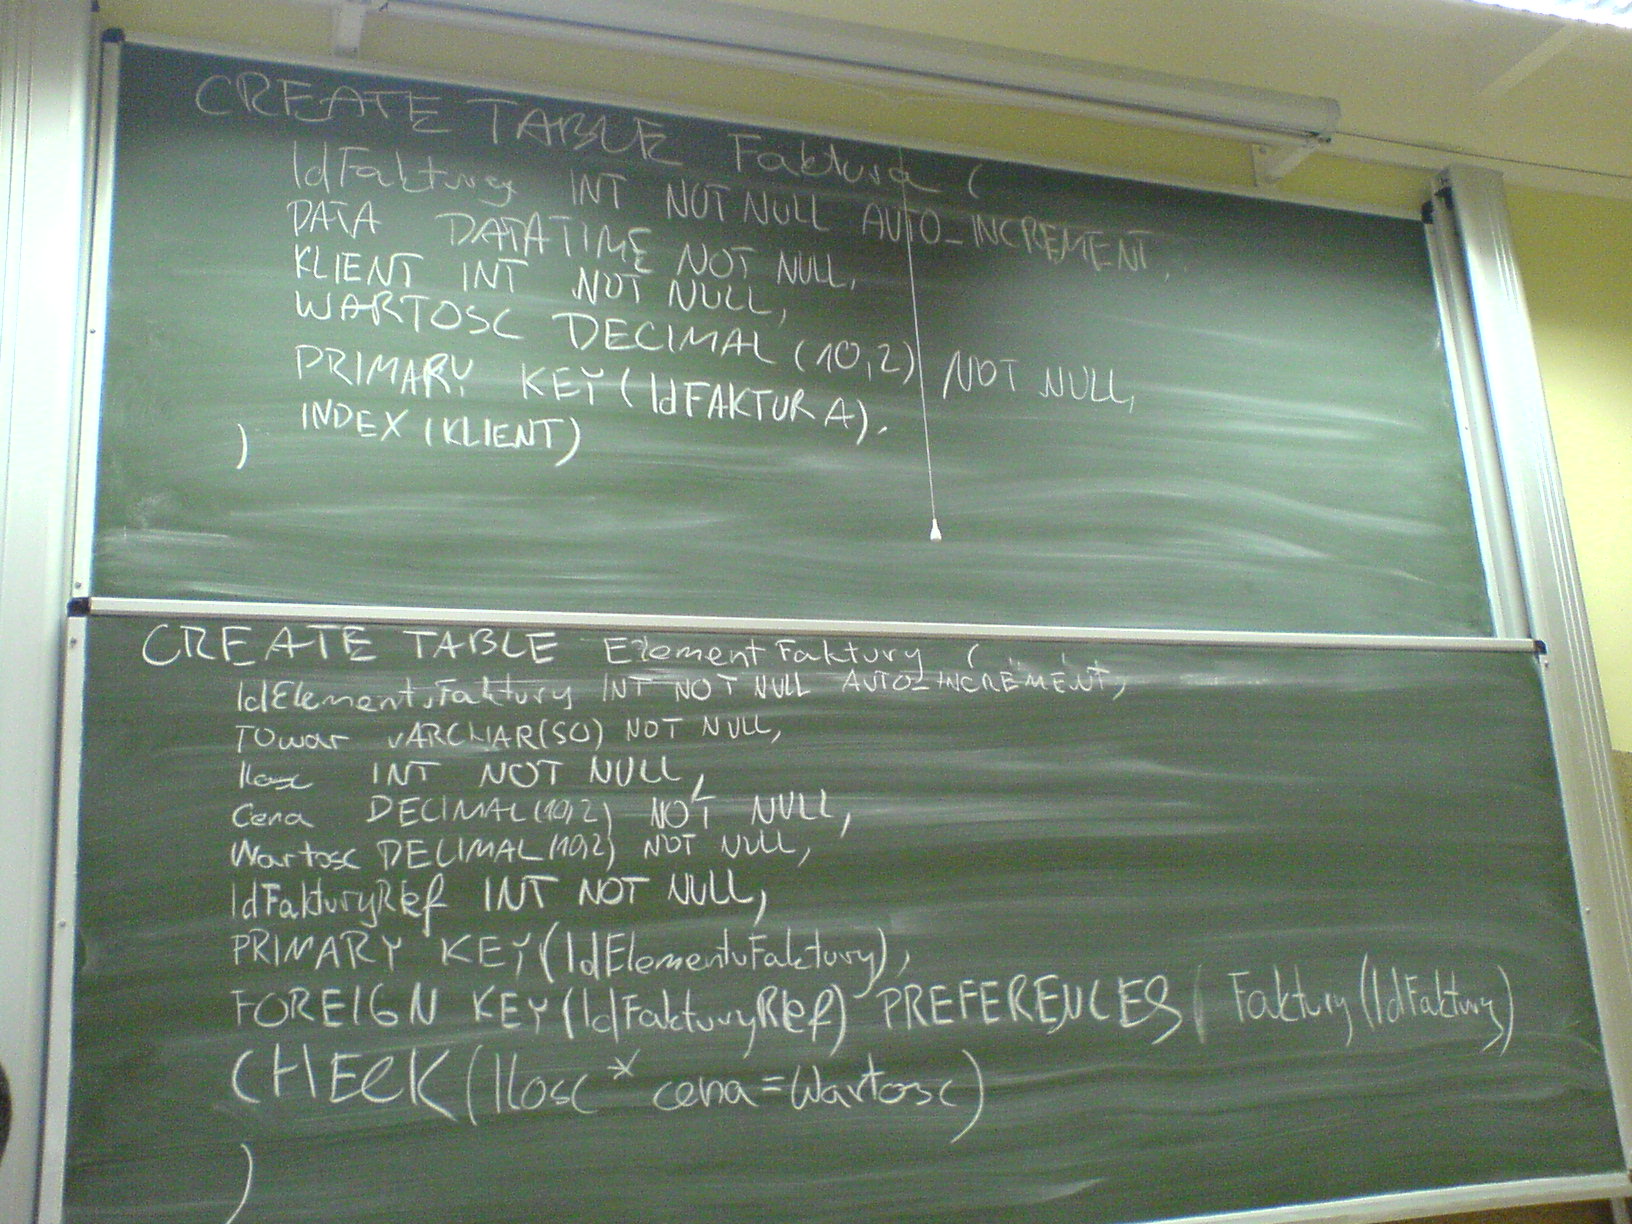 CREATE TABLE Faktura (
IdFaktury INT NOT NULL AUTO_INCREMENT,
DATA DATATIME NOT NULL,
KLIENT INT NOT NULL,
WARTOSC DECIMAL (10,2) NOT NULL,
PRIMARY KEY (IdFAKTURA).
INDEX (KLIENT)
)
CREATE TABLE ElementFaktury (
IdElementuFaktury INT NOT NULL AUTO_INCREMENT,
Towar VARCHAR(50) NOT NULL,
Ilosc INT NOT NULL,
Cena DECIMAL(10,2) NOT NULL,
Wartosc DECIMAL(10,2) NOT NULL,
IdFakturyRef INT NOT NULL,
PRIMARY KEY(IdElementuFaktury),
FOREIGN KEY(IdFakturyRef) PREFERENCES Faktury(IdFaktury)
CHECK(Ilosc * cena=Wartosc)
)